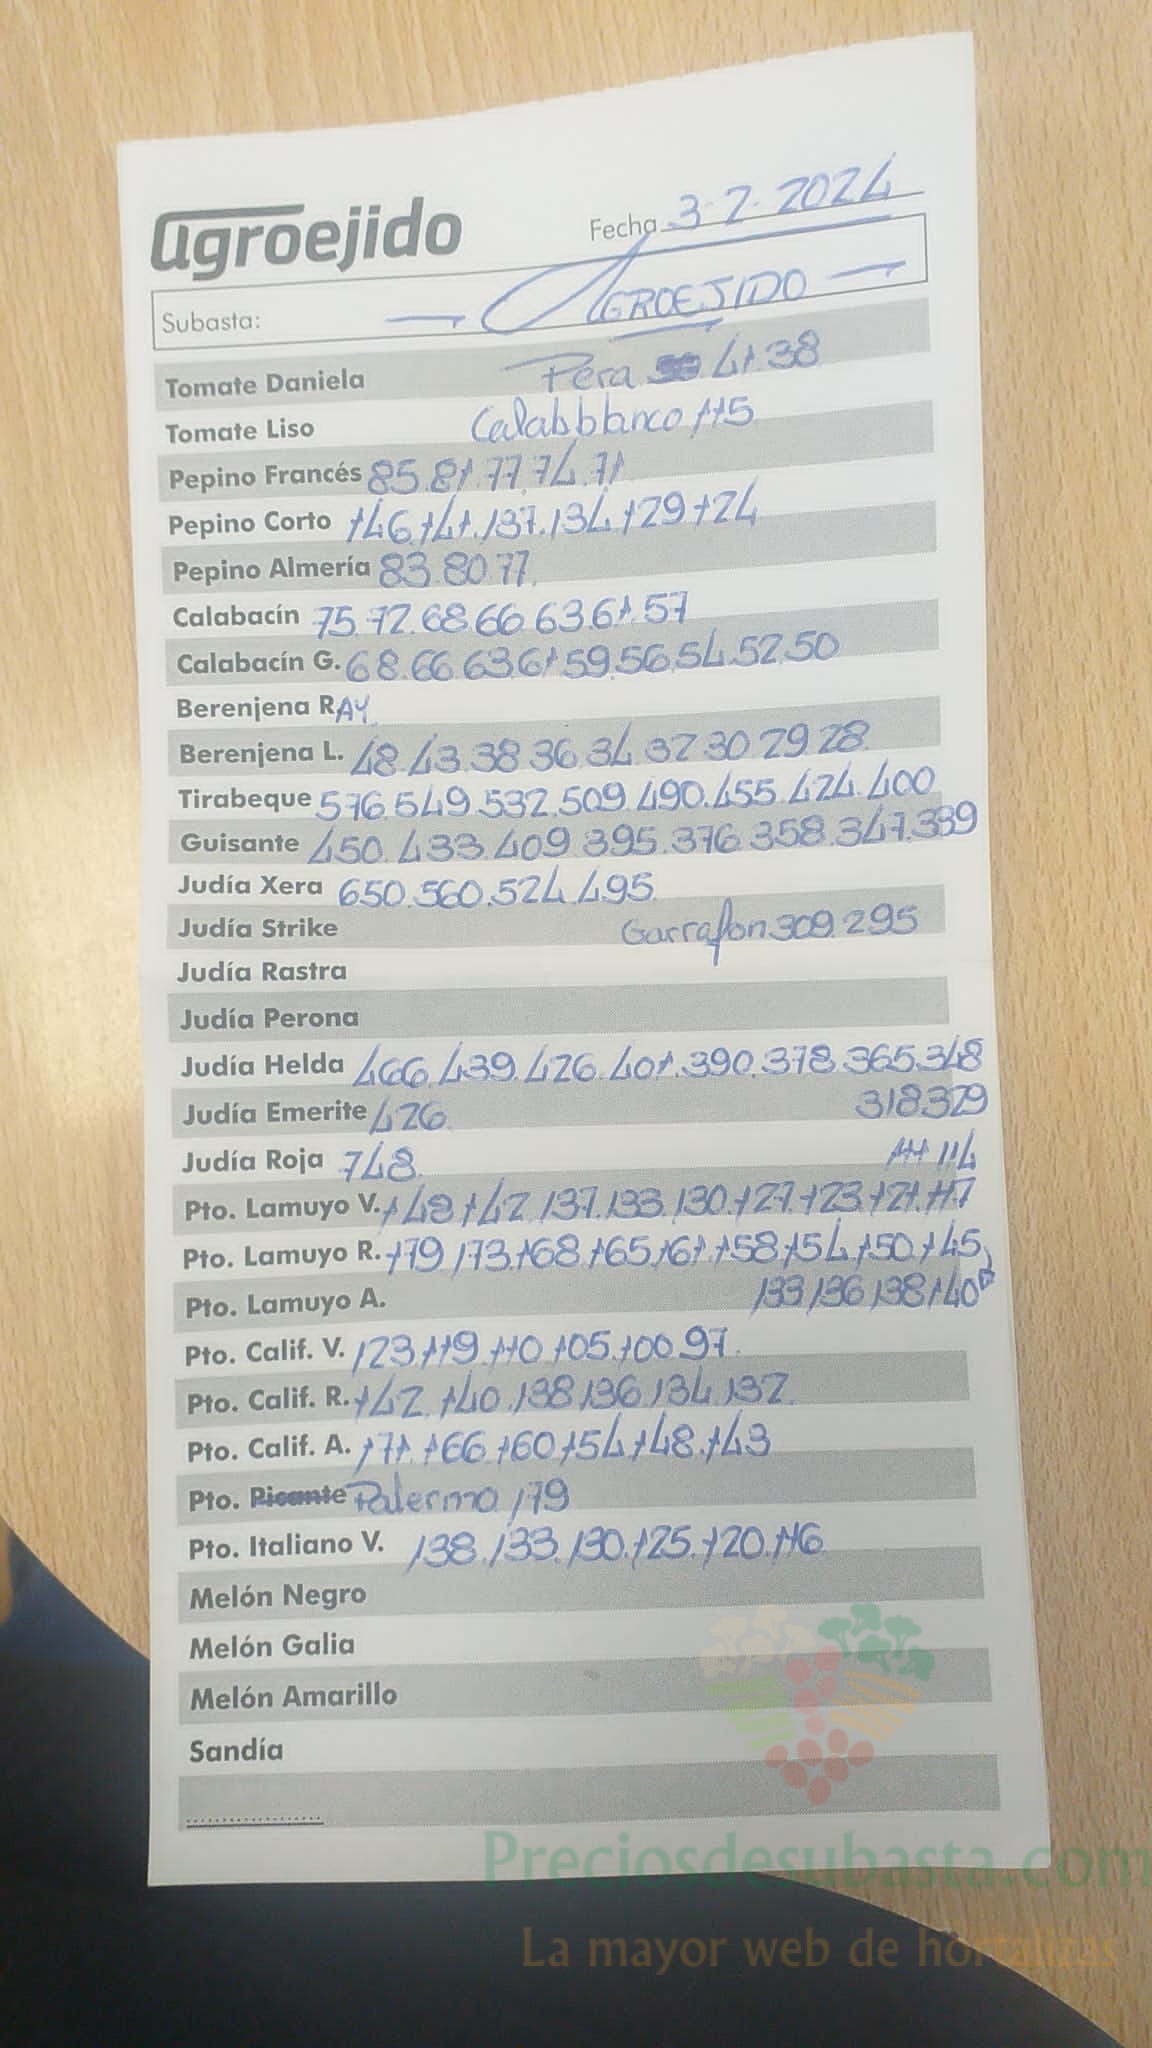 agroejido
Fecha 3-2-2024
Subasta: — AGROEJIDO —
Tomate Daniela Pera 41.38
Tomate Liso Calab blanco 115
Pepino Francés 85.81.77.74.71
Pepino Corto 146.141.137.134.129.124
Pepino Almería 83.80.77.
Calabacín 75.72.68.66.63.61.57
Calabacín G. 68.66.63.61.59.56.54.52.50
Berenjena RAY
Berenjena L. 48.43.38.36.34.32.30.29.28.
Tirabeque 576.549.532.509.490.455.424.400
Guisante 450.433.409.395.376.358.347.339
Judía Xera 650.560.524.495.
Judía Strike Garrafon 309.295
Judía Rastra
Judía Perona
Judía Helda 466.439.426.401.390.378.365.348
Judía Emerite 426. 318.329
Judía Roja 748. 111.114
Pto. Lamuyo V. 148.142.137.133.130.127.123.121.117
Pto. Lamuyo R. 179.173.168.165.161.158.154.150.145
Pto. Lamuyo A. 133.136.138.140
Pto. Calif. V. 123.119.110.105.100.97.
Pto. Calif. R. 142.140.138.136.134.132.
Pto. Calif. A. 171.166.160.154.148.143
Pto. Picante Palermo 179
Pto. Italiano V. 138.133.130.125.120.116
Melón Negro
Melón Galia
Melón Amarillo
Sandía
Preciosdesubasta.com
La mayor web de hortalizas